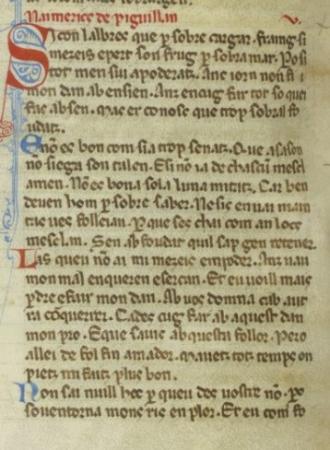 Naimerics de piguillan. v.
Sicon lalbres que p sobre cargar. fraing si
mezeis e pert son frug e sobramar. Posi
tot men sui apoderatz. Anc iorn non fi
mon dan ab en sen. Anz encug far tot so quei
fac ab sen. mas er conosc que trop sobral fo
udatz.
E no es bon com sia trop senatz. Que a sason
no siega son talen. E si no i a de chascu mescl
amen. No es bona sola luna mitatz. Car ben
deven hom p sobre saber. Nesic en vai man
tas ves folleian. P que ses chai com an loce
mescl an. Sen ab foudat qui l sap gen retener.
Las quieu no ai mi mezeis en poder. Anz vau
mon mal enqueren e sercan. Et eu voill mais
pdre e far mon dan. Ab vos domna cab autr
ra coquerrer. Cades cug far ab aquest dan
mon pro. E que savis ab questa follor. Pero
a llei de fol fin amador. mavetz tot temps on
pietz mi faitz plus bon.
Non sai nuill hoc p queu des vostre no. Po
soven torna mone ris en plor. Et eu com fo